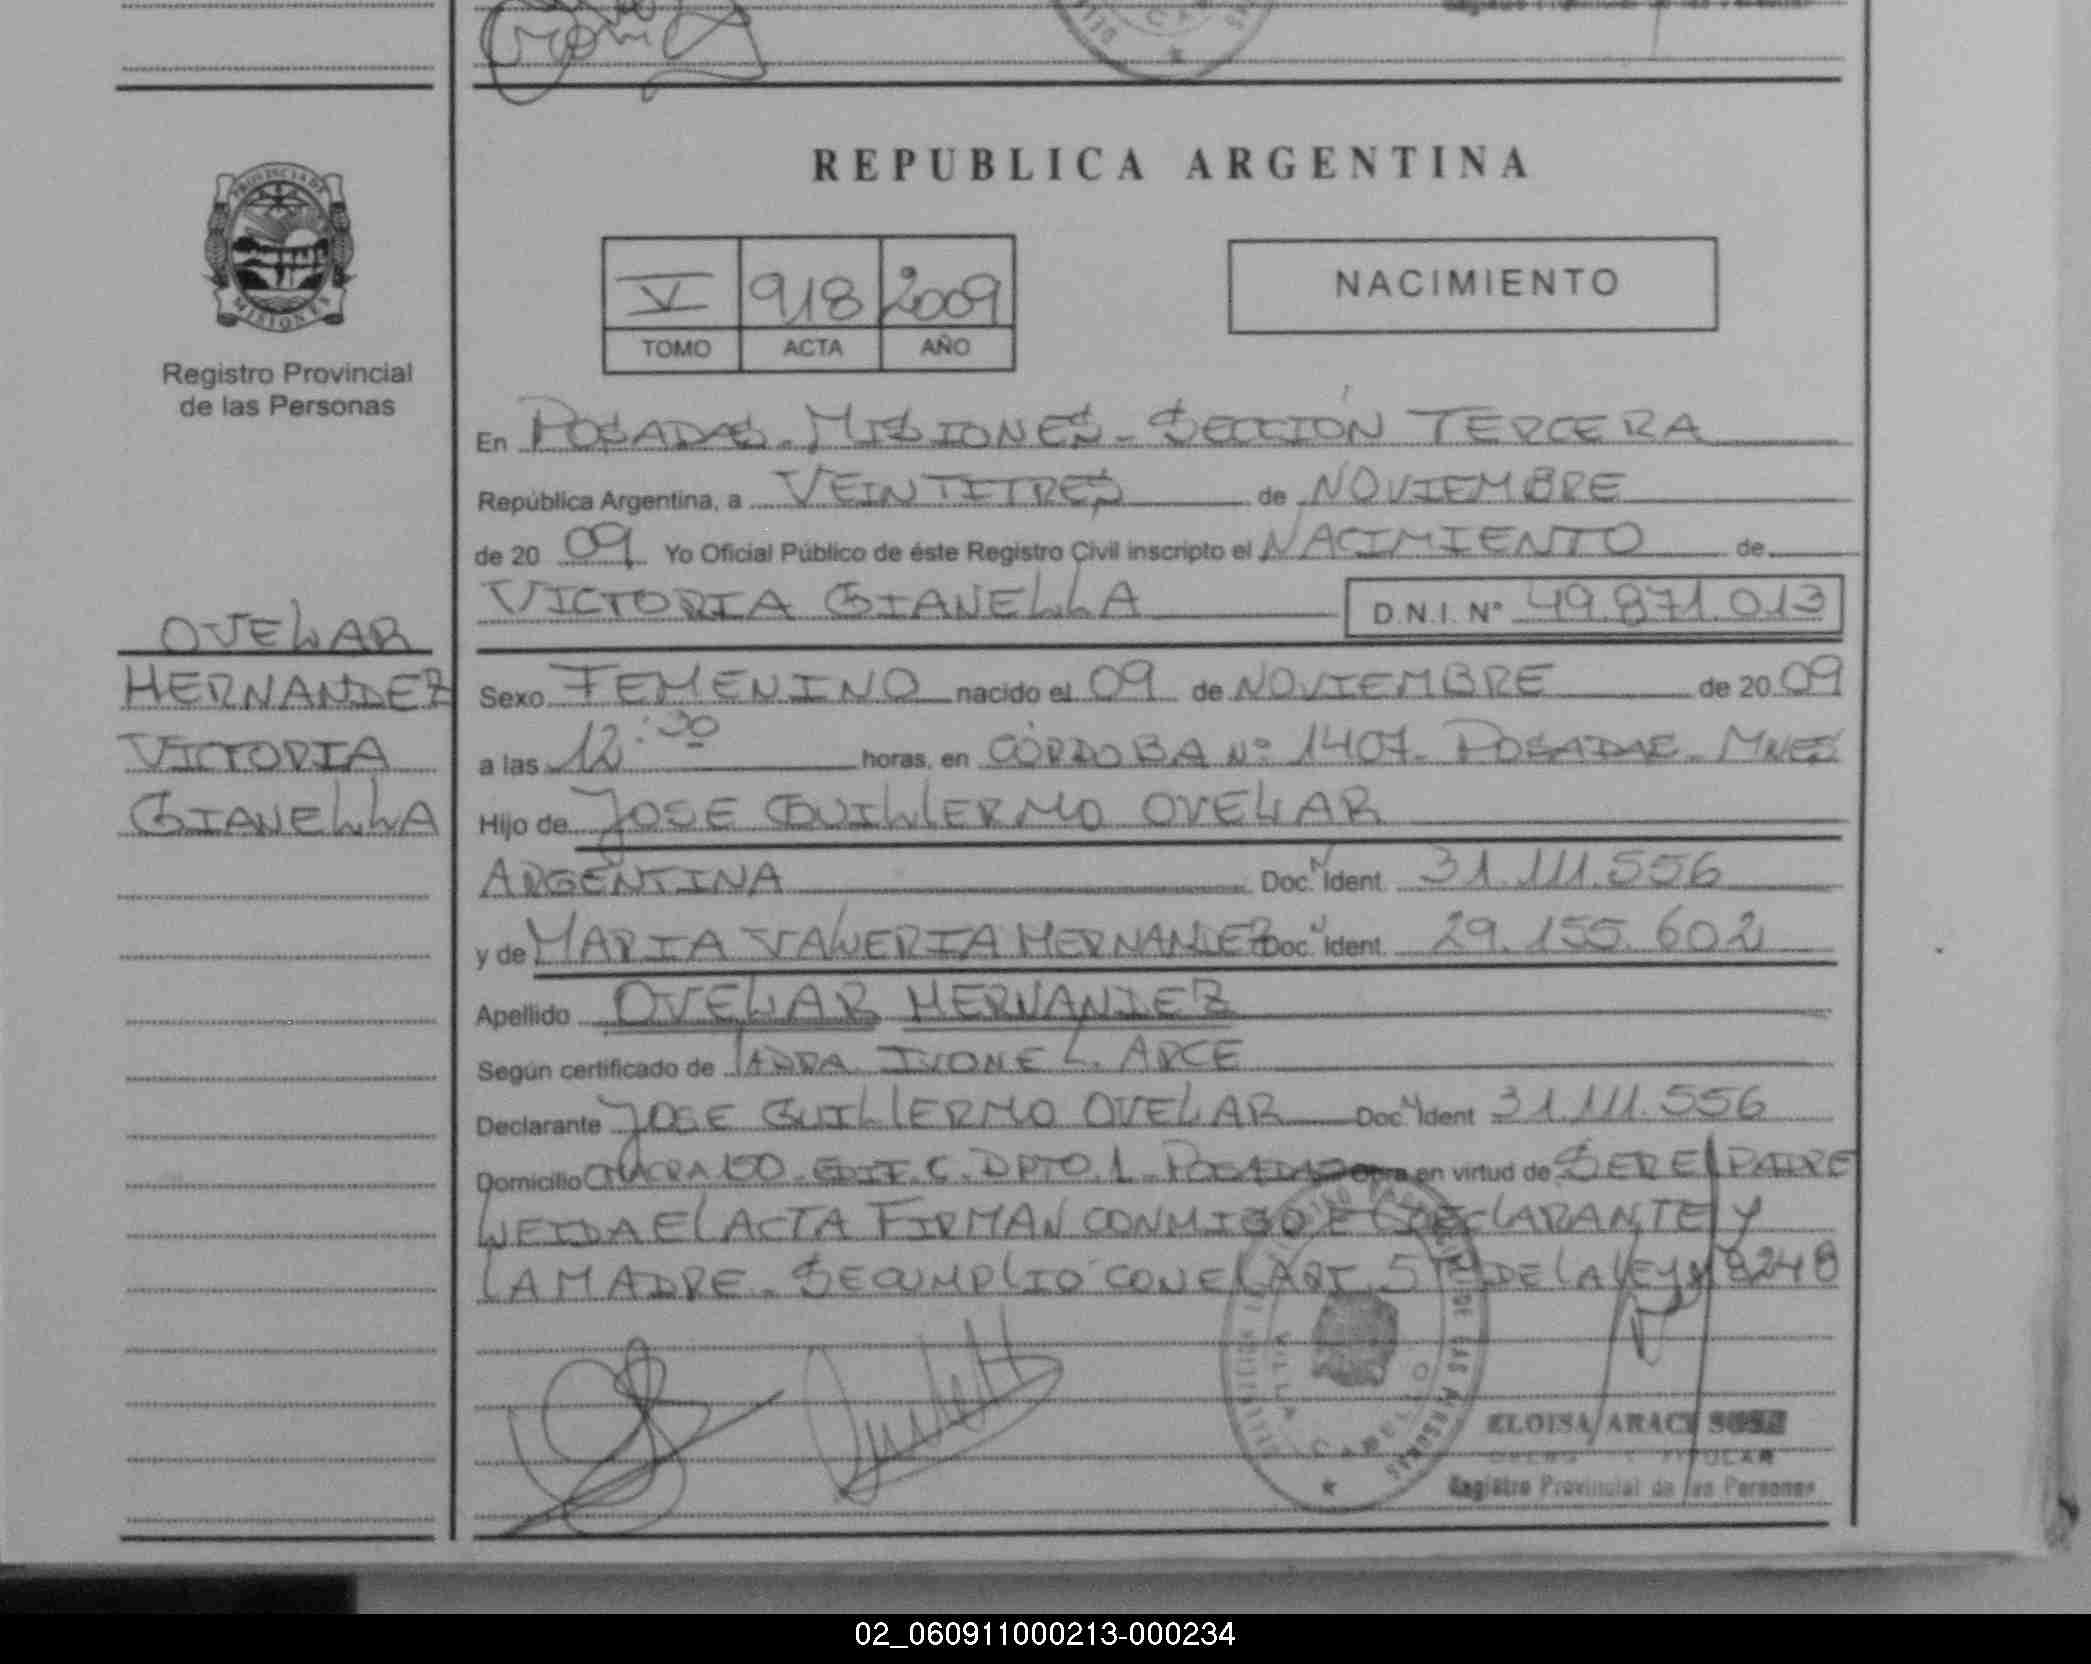 REPUBLICA ARGENTINA
PROVINCIA DE
MISIONES
V 918 2009
TOMO ACTA AÑO
NACIMIENTO
Registro Provincial
de las Personas
En POSADAS - MISIONES - SECCIÓN TERCERA
República Argentina, a VEINTITRES de NOVIEMBRE
de 20 09 Yo Oficial Público de éste Registro Civil inscripto el NACIMIENTO de
VICTORIA GIANELLA D.N.I. Nº 49.871.013
OVELAR
HERNANDEZ
VICTORIA
GIANELLA
Sexo FEMENINO nacido el 09 de NOVIEMBRE de 20 09
a las 12:30 horas, en CORDOBA Nº 1407 - POSADAS - MNES
Hijo de JOSE GUILLERMO OVELAR
ARGENTINA Doc. N Ident 31.111.556
y de MARIA VALERIA HERNANDEZ Doc. N Ident 29.155.602
Apellido OVELAR HERNANDEZ
Según certificado de IVONE L. ARCE
Declarante JOSE GUILLERMO OVELAR Doc. N Ident 31.111.556
Domicilio CHACRA 150 - EDIF. C. DPTO. 1 - POSADAS Obra en virtud de SER EL PADRE
LEIDA EL ACTA FIRMAN CONMIGO EL DECLARANTE Y
LA MADRE - SE CUMPLIO CON EL ART. 5 DE LA LEY Nº 8248
VILLA CABELLO
ELOISA ARACI SOSA
TITULAR
Registro Provincial de las Personas
02_060911000213-000234